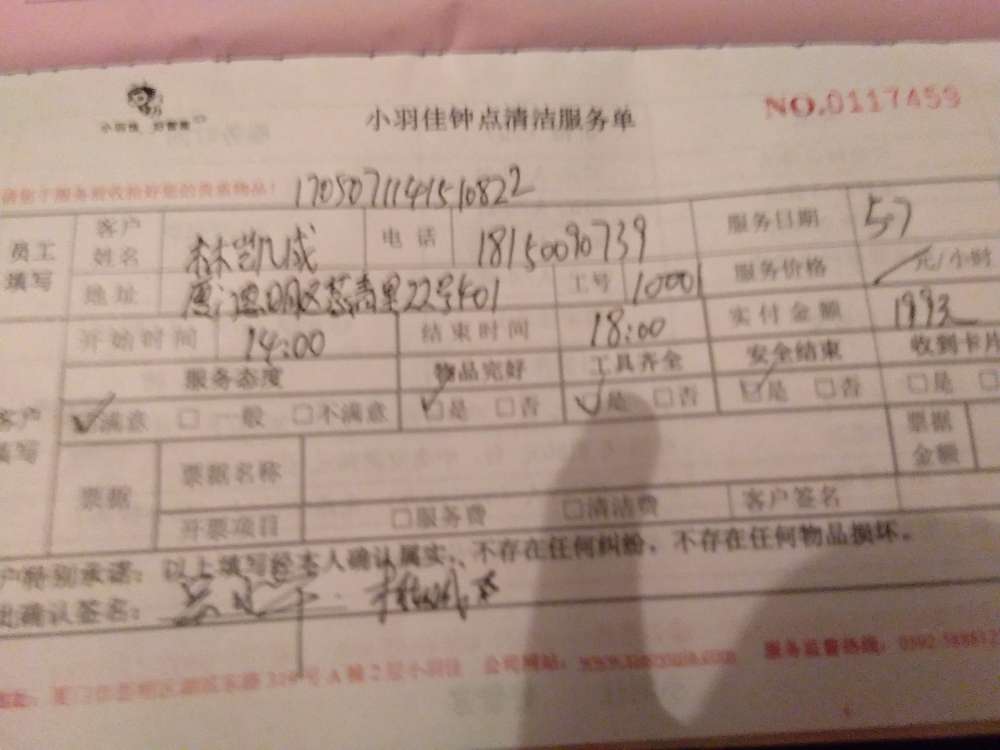 小羽佳 好管家
小羽佳钟点清洁服务单
NO.0117459
请您于服务前收拾好您的贵重物品! 170507114151082 2
员工填写 客户姓名 林凯成 电话 18150090739 服务日期 5.7
地址 厦门思明区 里22号401 工号 10001 服务价格 元/小时
开始时间 14:00 结束时间 18:00 实付金额 1993
服务态度 物品完好 工具齐全 安全结束 收到卡片
客户填写 ☑满意 □一般 □不满意 ☑是 □否 ☑是 □否 ☑是 □否 □是 □
票据 票据名称 票据金额
开票项目 □服务费 □清洁费 客户签名
户特别承诺:以上填写经本人确认属实,不存在任何纠纷,不存在任何物品损坏。
此确认签名:
地址:厦门市思明区湖滨东路319号A幢2层小羽佳 公司网站: 服务监督热线:0592-588812